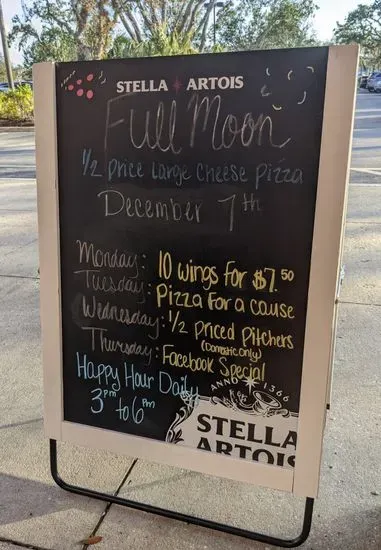 STELLA ARTOIS
Full Moon
1/2 price Large Cheese Pizza
December 7th
Monday: 10 wings for $7.50
Tuesday: Pizza for a cause
Wednesday: 1/2 priced Pitchers
(Domestic only)
Thursday: Facebook Special
Happy Hour Daily
3pm to 6pm
ANNO 1366
STELLA
ARTOIS